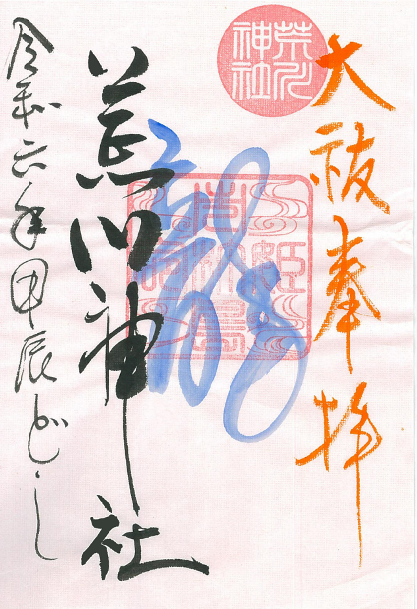 大祓奉拝
荒川神社
龍
荒川神社
令和六年甲辰どし